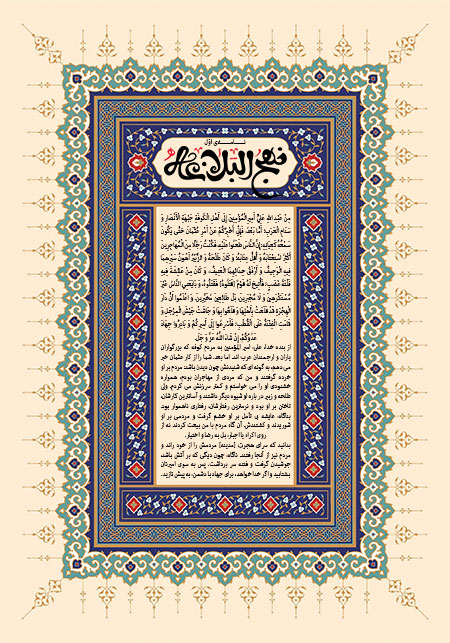 نامه‌ی اوّل
نهج البلاغه
مِنْ عَبْدِ اللهِ عَلِيٍّ أَمِيرِ الْمُؤْمِنِينَ إِلَى أَهْلِ الْكُوفَةِ جَبْهَةِ الْأَنْصَارِ وَ
سَنَامِ الْعَرَبِ أَمَّا بَعْدُ، فَإِنِّي أُخْبِرُكُمْ عَنْ أَمْرِ عُثْمَانَ حَتَّى يَكُونَ
سَمْعُهُ كَعِيَانِهِ: إِنَّ النَّاسَ طَعَنُوا عَلَيْهِ، فَكُنْتُ رَجُلاً مِنَ الْمُهَاجِرِينَ
أُكْثِرُ اسْتِعْتَابَهُ وَ أُقِلُّ عِتَابَهُ وَ كَانَ طَلْحَةُ وَ الزُّبَيْرُ أَهْوَنُ سَيْرِهِمَا
فِيهِ الْوَجِيفُ وَ أَرْفَقُ حِدَائِهِمَا الْعَنِيفُ، وَ كَانَ مِنْ عَائِشَةَ فِيهِ
فَلْتَةُ غَضَبٍ، فَأُتِيحَ لَهُ قَوْمٌ فَقَتَلُوهُ، وَ بَايَعَنِي النَّاسُ غَيْرَ
مُسْتَكْرَهِينَ وَ لَا مُجْبَرِينَ، بَلْ طَائِعِينَ مُخَيَّرِينَ. وَ اعْلَمُوا أَنَّ دَارَ
الْهِجْرَةِ قَدْ قَلَعَتْ بِأَهْلِهَا وَ قَلَعُوا بِهَا وَ جَاشَتْ جَيْشَ الْمِرْجَلِ وَ
قَامَتِ الْفِتْنَةُ عَلَى الْقُطْبِ، فَأَسْرِعُوا إِلَى أَمِيرِكُمْ وَ بَادِرُوا جِهَادَ
عَدُوِّكُمْ، إِنْ شَاءَ اللهُ عَزَّ وَ جَلَّ
از بنده خدا، علی، امیر المؤمنین به مردم کوفه که بزرگواران
یاران و ارجمندان عرب اند. اما بعد، شما را از کار عثمان خبر
می دهم، به گونه ای که شنیدنش چون دیدن باشد: مردم بر او
خرده گرفتند و من که مردی از مهاجران بودم، همواره
خشنودی او را می خواستم و کمتر سرزنش می کردم. ولی
طلحه و زبیر در باره او شیوه دیگر داشتند و آسانترین کارشان،
تاختن بر او بود و نرمترین رفتارشان، رفتاری ناهموار بود.
بناگاه، عایشه بی تأمل بر او خشم گرفت و مردمی بر او
شوریدند و کشتندش. آن گاه مردم با من بیعت کردند نه از
روی اکراه یا اجبار، بل به رضا و اختیار.
بدانید که سرای هجرت [مدینه] مردمش را از خود راند و
مردم نیز از آنجا رفتند. ناگاه، چون دیگی که بر آتش باشد
جوشیدن گرفت و فتنه سر برداشت. پس به سوی امیرتان
بشتابید و اگر خدا خواهد، برای جهاد با دشمن، به پیش تازید.